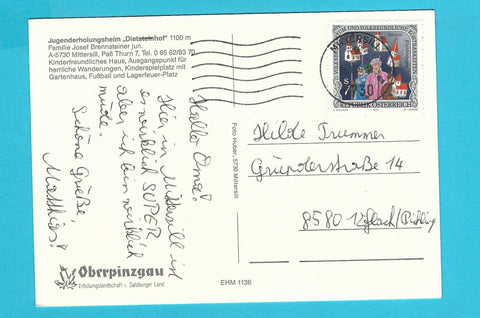 Jugenderholungsheim „Dietsteinhof“ 1100 m
Familie Josef Brennsteiner jun.
A-5730 Mittersill, Paß Thurn 7, Tel. 0 65 62/83 70
Kinderfreundliches Haus, Ausgangspunkt für
herrliche Wanderungen, Kinderspielplatz mit
Gartenhaus, Fußball und Lagerfeuer-Platz
Hallo Oma!
Hier in Mittersill ist
es wirklich SUPER
aber ich bin wirklich
müde.
Schöne Grüße,
Matthias!
Oberpinzgau
Erholungslandschaft i. Salzburger Land
Foto Huber, 5730 Mittersill
EHM 1136
5730
REPUBLIK ÖSTERREICH
Hilde Trummer
Grubenstraße 14
8580